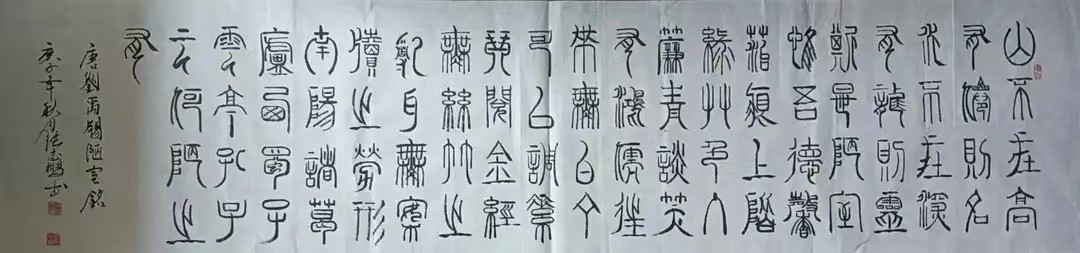 山不在高
有僊則名
水不在深
有龍則靈
斯是陋室
惟吾德馨
苔痕上階
綠艸色入
簾青談笑
有鴻儒往
來無白丁
可以調素
琴閱金經
無絲竹之
亂耳無案
牘之勞形
南陽諸葛
廬西蜀子
雲亭孔子
云何陋之
有
唐劉禹錫陋室銘
庚子年秋月書